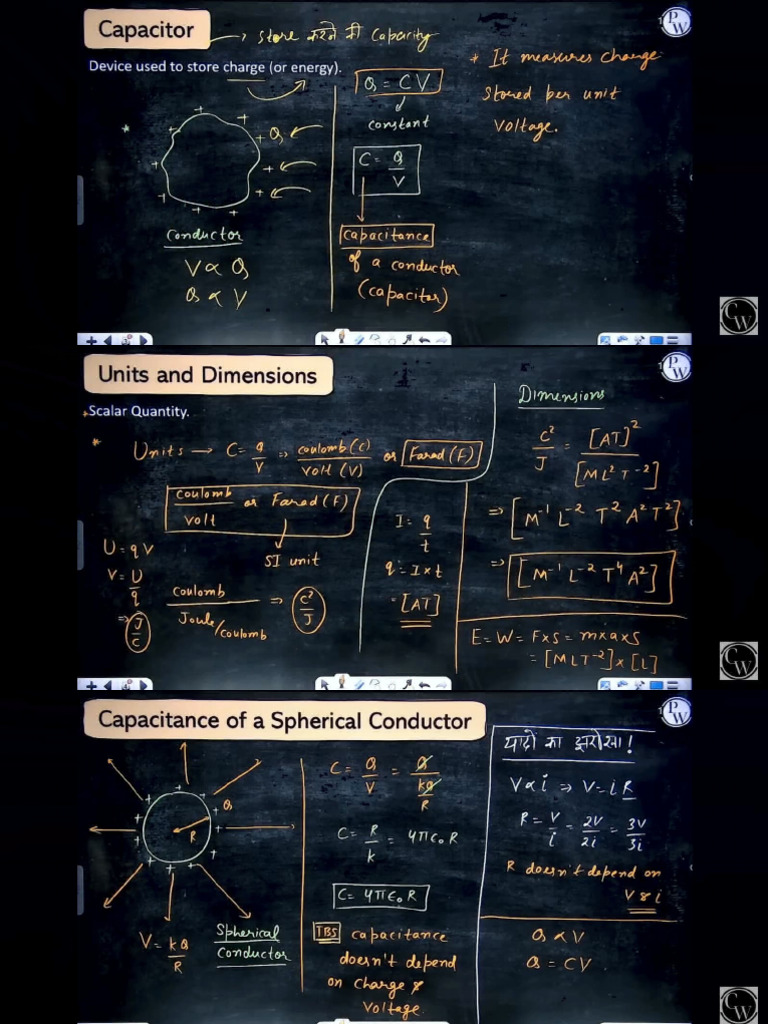 Capacitor
→ store करने की Capacity
Device used to store charge (or energy).
+ Q
conductor
V ∝ Q
Q ∝ V
Q = CV
constant
C = Q/V
capacitance
of a conductor
(capacitor)
* It measures charge
stored per unit
voltage.
PW
CW
Units and Dimensions
Scalar Quantity.
* Units → C = q/V ⇒ coulomb(c)/volt(V) or Farad(F)
coulomb/volt or Farad(F)
SI unit
U = qV
V = U/q
⇒ J/C
coulomb/Joule/coulomb ⇒ C²/J
I = q/t
q = I×t
= [AT]
Dimensions
C²/J = [AT]²/[ML²T⁻²]
⇒ [M⁻¹ L⁻² T² A² T²]
⇒ [M⁻¹ L⁻² T⁴ A²]
E = W = F×S = m×a×s
= [MLT⁻²] × [L]
PW
CW
Capacitance of a Spherical Conductor
Q
R
V = kQ/R
Spherical
Conductor
C = Q/V = Q/kQ/R
C = R/k = 4πε₀R
C = 4πε₀R
TBS capacitance
doesn't depend
on charge &
voltage.
यादों का झरोखा!
V ∝ i ⇒ V = iR
R = V/i = 2V/2i = 3V/3i
R doesn't depend on
V & i
Q ∝ V
Q = CV
PW
CW